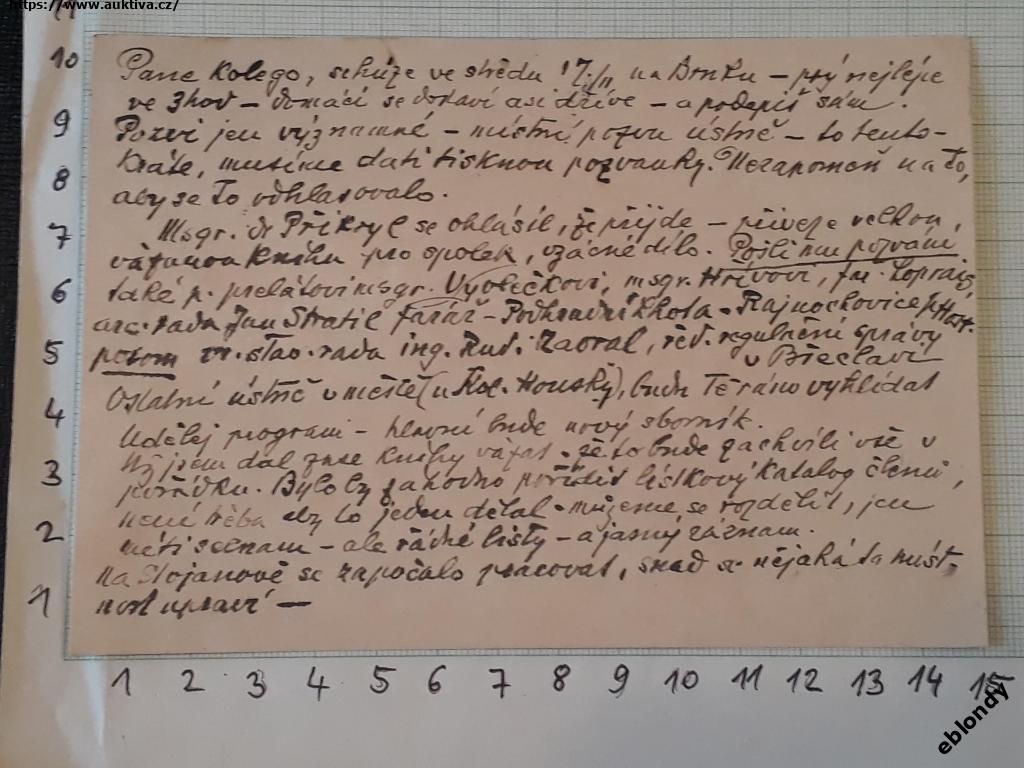 https://www.auktiva.cz/
Pane kolego, schůze ve středu 17./II na Brnku – prý nejlépe
ve 3 hod – domácí se dostaví asi dříve – a podepiš sám.
Pozvi jen významné – místní pozvu ústně – to tento-
kráte, musíme dáti tisknou pozvánky. Nezapomeň na to,
aby se to odhlasovalo.
Msgr. Dr Přikryl se ohlásil, že přijde – přiveze velkou,
vázanou knihu pro spolek, vzácné dílo. Pošli mu pozvání
také p. prelátovi msgr. msgr. Hřívovi,
arc. rada Jan Stratil farář – Podhradní Lhota – Rajnochovice p/Host.
potom vr. stav. rada ing. Rud. Zaoral, řed. regulační správy
v Břeclavi
Ostatní ústně v městě (u Kol. Housky), budu Tě ráno vyhlídat
Udělej program – hlavní bude nový sborník.
Už jsem dal zase knihy vázat – že to bude zachvíli vše v
pořádku. Bylo by záhodno poříditi lístkový katalog členů,
není třeba aby to jeden dělal – můžeme se rozdělit, jen
míti seznam – ale řádné listy – a jasný záznam.
Na Stojanově se započalo pracovat, snad se nějaká ta míst-
nost upraví —
11
10
9
8
7
6
5
4
3
2
1
1 2 3 4 5 6 7 8 9 10 11 12 13 14 15
eblondy